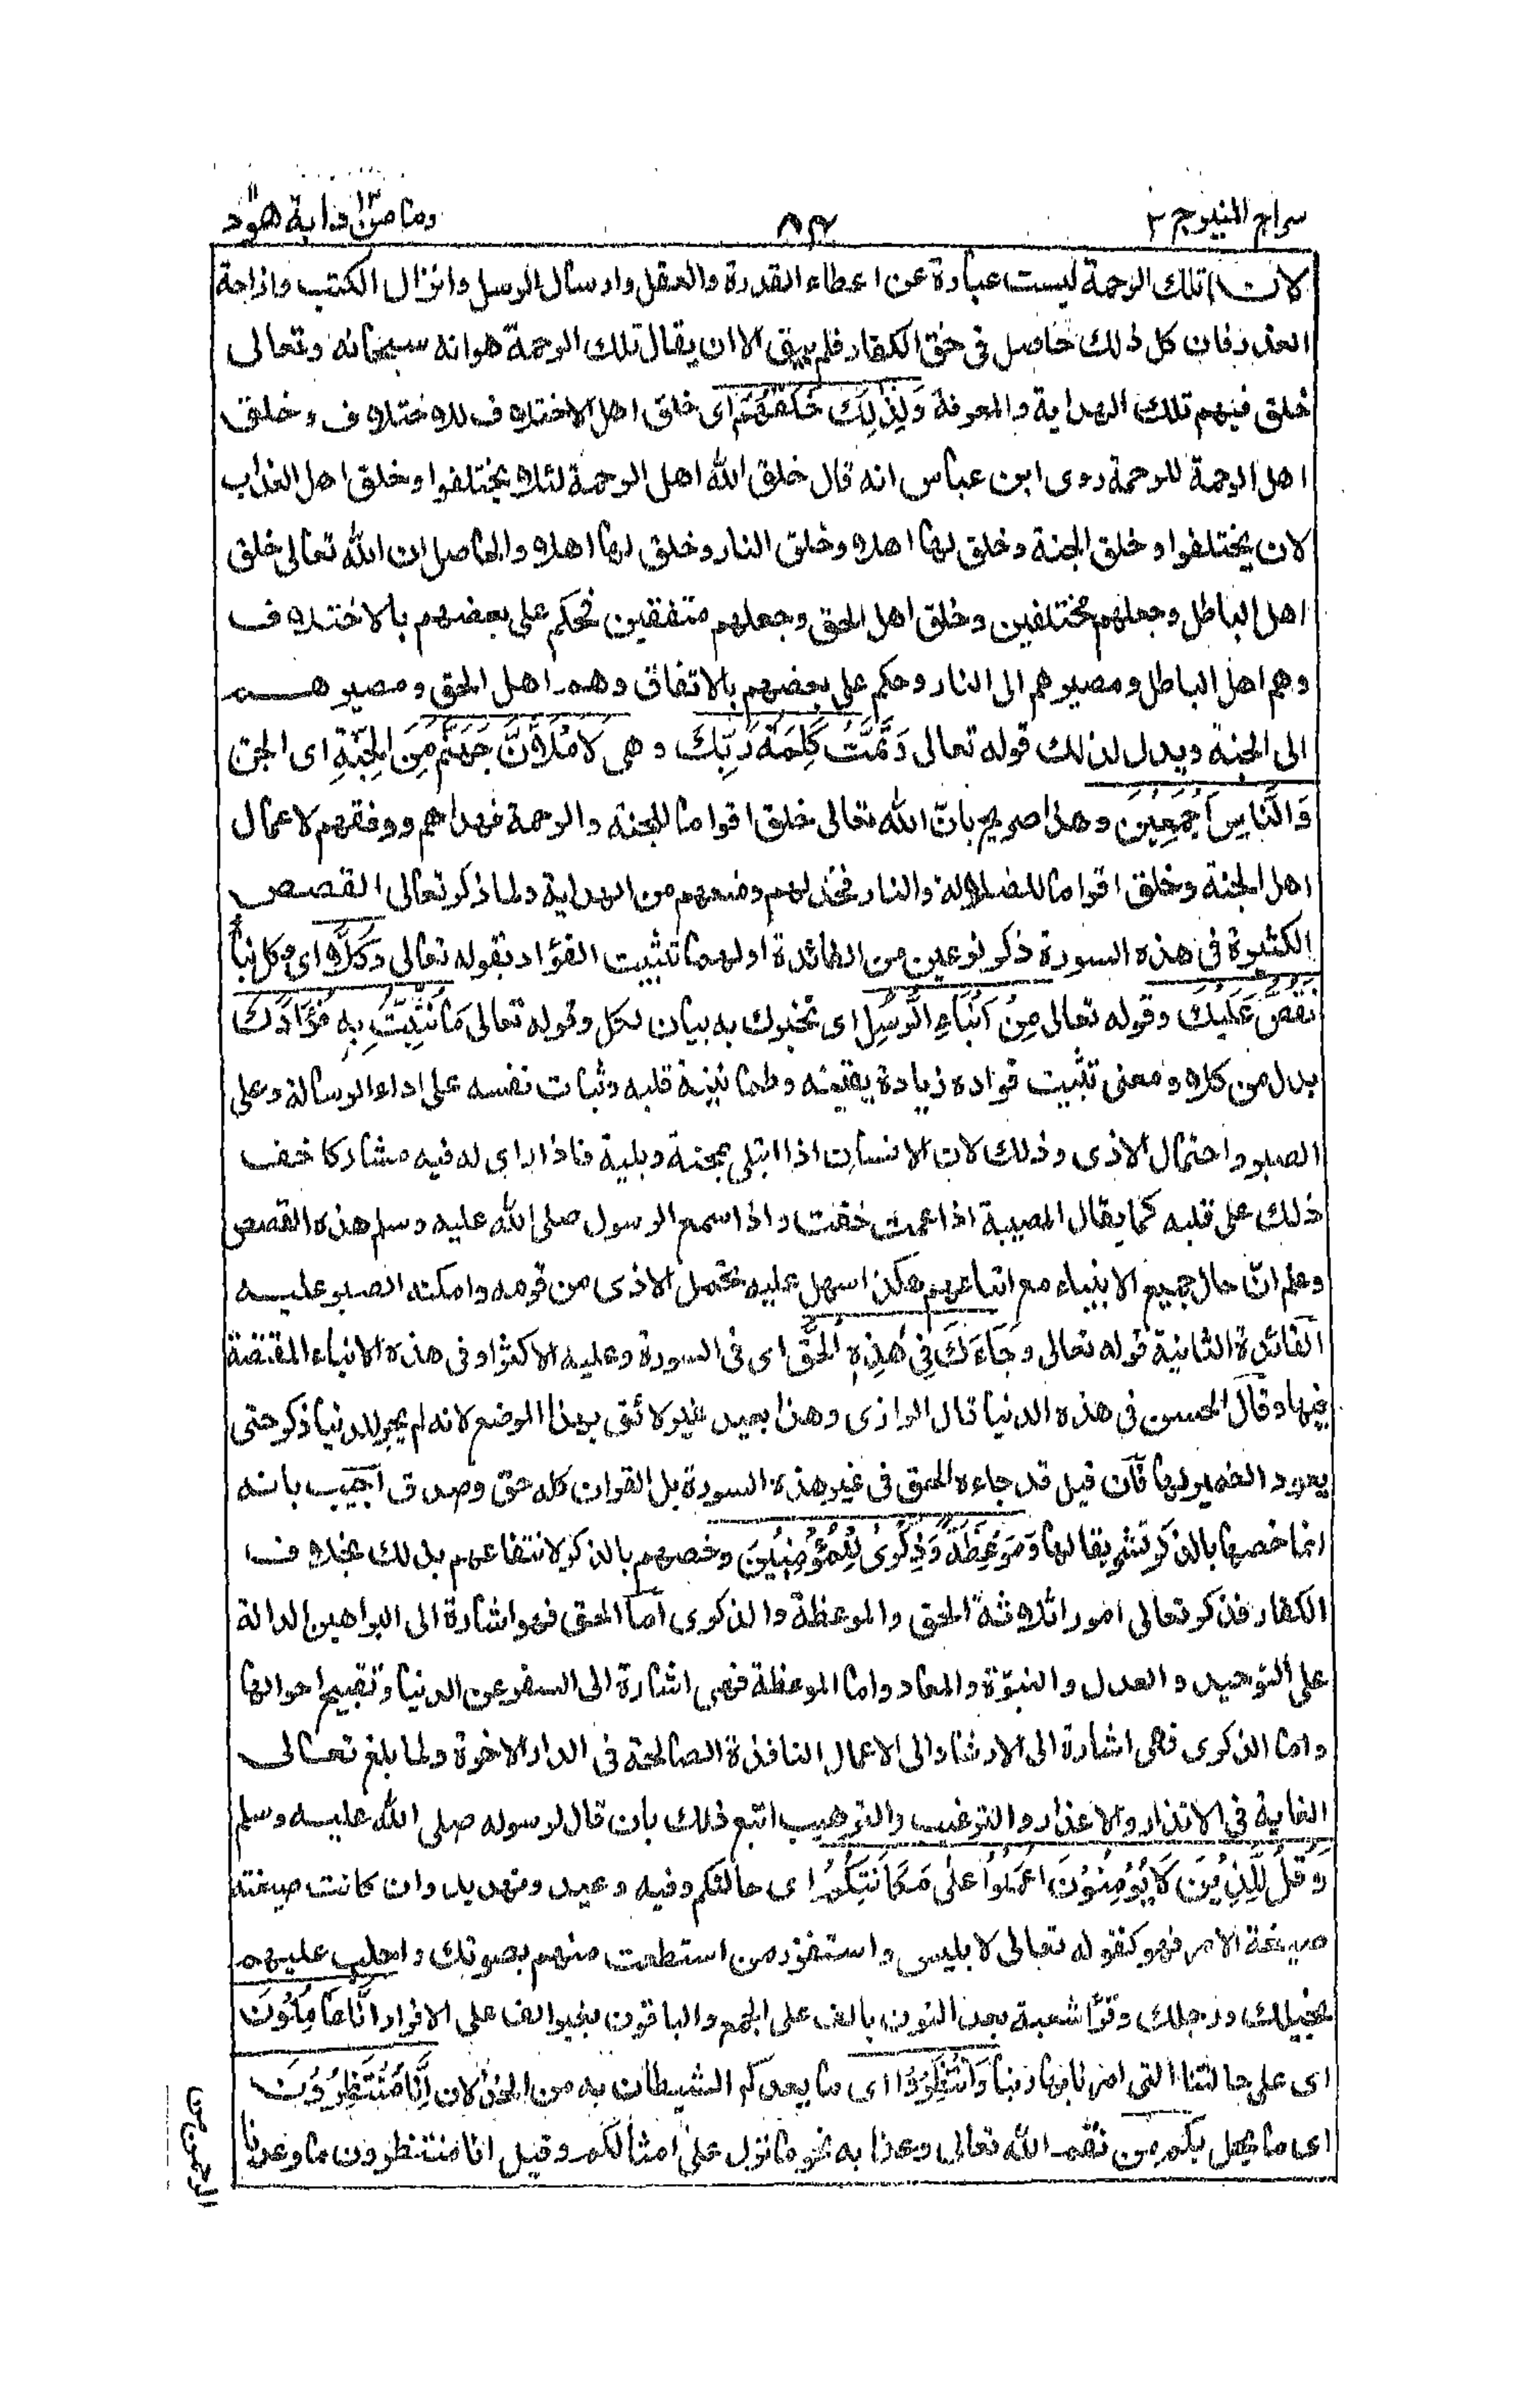 سراج المنير ج ٣
٨٣
وما من دابة ١٢ هود ١١
لان تلك الرحمة ليست عبارة عن اعطاء القدرة والعقل وارسال الرسل وانزال الكتب وازاحة
العذر فان كل ذلك حاصل فى حق الكفار فلم يبق الا ان يقال تلك الرحمة هو انه سبحانه وتعالى
خلق فيهم تلك الهداية والمعرفة وَلِذٰلِكَ خَلَقَهُمْ اى خلق اهل الاختلاف للاختلاف وخلق
اهل الرحمة للرحمة روى ابن عباس انه قال خلق الله اهل الرحمة لئلا يختلفوا وخلق اهل العذاب
لان يختلفوا وخلق الجنة وخلق لها اهلا وخلق النار وخلق لها اهلا والحاصل ان الله تعالى خلق
اهل الباطل وجعلهم مختلفين وخلق اهل الحق وجعلهم متفقين فحكم على بعضهم بالاختلاف
وهم اهل الباطل ومصيرهم الى النار وحكم على بعضهم بالاتفاق وهم اهل الحق ومصيرهم
الى الجنة ويدل لذلك قوله تعالى وَتَمَّتْ كَلِمَةُ رَبِّكَ وهى لَاَمْلَاَنَّ جَهَنَّمَ مِنَ الْجِنَّةِ اى الجن
وَالنَّاسِ اَجْمَعِيْنَ وهذا صريح بانّ الله تعالى خلق اقواما للجنة والرحمة فهداهم ووفقهم لاعمال
اهل الجنة وخلق اقواما للضلالة والنار فخذلهم ومنعهم من الهداية ولما ذكر تعالى القصص
الكثيرة فى هذه السورة ذكر نوعين من الفائدة اولهما تثبيت الفؤاد بقوله تعالى وَكُلًّا اى وكل نبأ
نَقُصُّ عَلَيْكَ وقوله تعالى مِنْ اَنْبَاءِ الرُّسُلِ اى نخبرك به بيان لكل وقوله تعالى مَا نُثَبِّتُ بِهٖ فُؤَادَكَ
بدل من كلا ومعنى تثبيت فواده زيادة يقينه وطمانينة قلبه وثبات نفسه على اداء الرسالة وعلى
الصبر واحتمال الاذى وذلك لان الانسان اذا ابتلى بمحنة وبلية فاذا راى له فيه مشاركا خف
ذلك على قلبه كما يقال المصيبة اذا عمت خفت واذا سمع الرسول صلى الله عليه وسلم هذه القصص
وعلم انّ حال جميع الانبياء مع اتباعهم هكذا سهل عليه تحمل الاذى من قومه وامكنه الصبر عليه
الفائدة الثانية قوله تعالى وَجَاءَكَ فِىْ هٰذِهِ الْحَقُّ اى فى السورة وعليه الاكثر او فى هذه الانباء المقتصة
فيها وقال الحسن فى هذه الدنيا قال الرازى وهذا بعيد غير لائق بهذا الموضع لانه لم يجر للدنيا ذكر حتى
يعود الضمير لها فان قيل قد جاءه الحق فى غير هذه السورة بل القران كله حق وصدق اجيب بانه
انما خصها بالذكر تشريفا لها وَمَوْعِظَةٌ وَّذِكْرٰى لِلْمُؤْمِنِيْنَ وخصهم بالذكر لانتفاعهم بذلك بخلاف
الكفار فذكر تعالى امورا ثلاثة الحق والموعظة والذكرى اما الحق فهو اشارة الى البراهين الدالة
على التوحيد والعدل والنبوّة والمعاد واما الموعظة فهى اشارة الى السفر عن الدنيا وتقبيح احوالها
واما الذكرى فهى اشارة الى الارشاد الى الاعمال النافذة الصالحة فى الدار الاخرة ولما بلغ تعالى
الغاية فى الانذار والاعذار والترغيب والترهيب اتبع ذلك بان قال لرسوله صلى الله عليه وسلم
وَقُلْ لِّلَّذِيْنَ لَا يُؤْمِنُوْنَ اعْمَلُوْا عَلٰى مَكَانَتِكُمْ اى حالتكم وفيه وعيد وتهديد وان كانت صيغته
صيغة الامر فهو كقوله تعالى لابليس واستفزز من استطعت منهم بصوتك واجلب عليهم
بخيلك ورجلك وقرأ شعبة بعد النون بالف على الجمع والباقون بغير الف على الافراد اِنَّا عَامِلُوْنَ
اى على حالتنا التى امرنا بها ربنا وَانْتَظِرُوْا اى ما يعدكم الشيطان به من الخذلان اِنَّا مُنْتَظِرُوْنَ
اى ما يحل بكم من نقم الله تعالى وعذابه نحو ما نزل على امثالكم وقيل انا منتظرون ما وعدنا
الرحمن من